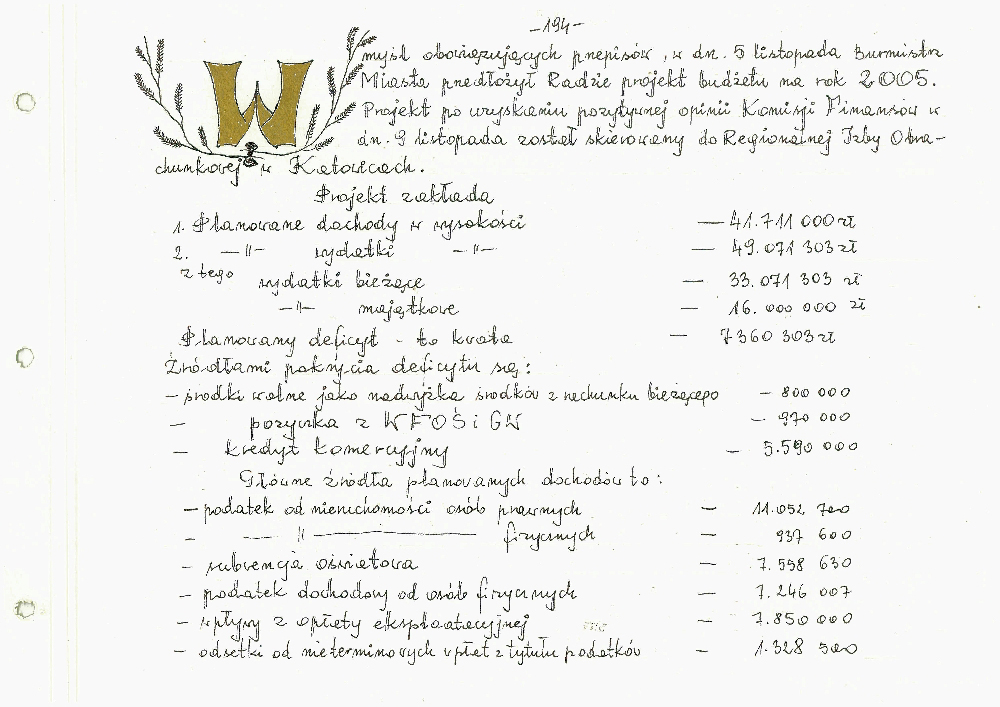 -194-
W myśl obowiązujących przepisów, w dn. 5 listopada Burmistrz
Miasta przedłożył Radzie projekt budżetu na rok 2005.
Projekt po uzyskaniu pozytywnej opinii Komisji Finansów w
dn. 9 listopada został skierowany do Regionalnej Izby Obra-
chunkowej w Katowicach.
Projekt zakłada
1. Planowane dochody w wysokości — 41.711 000 zł
2. —"— wydatki —"— — 49.071 303 zł
z tego wydatki bieżące — 33.071 303 zł
—"— majątkowe — 16.000 000 zł
Planowany deficyt - to kwota — 7360 303 zł
Źródłami pokrycia deficytu są:
- środki wolne jako nadwyżka środków z rachunku bieżącego — 800 000
— pożyczka z WFOŚiGW — 970 000
— kredyt komercyjny — 5.590 000
Główne źródła planowanych dochodów to:
- podatek od nieruchomości osób prawnych — 11.052 700
- —"— fizycznych — 937 600
- subwencja oświatowa — 7.558 630
- podatek dochodowy od osób fizycznych — 7.246 007
- wpływy z opłaty eksploatacyjnej — 7.850 000
- odsetki od nieterminowych wpłat z tytułu podatków — 1.328 500